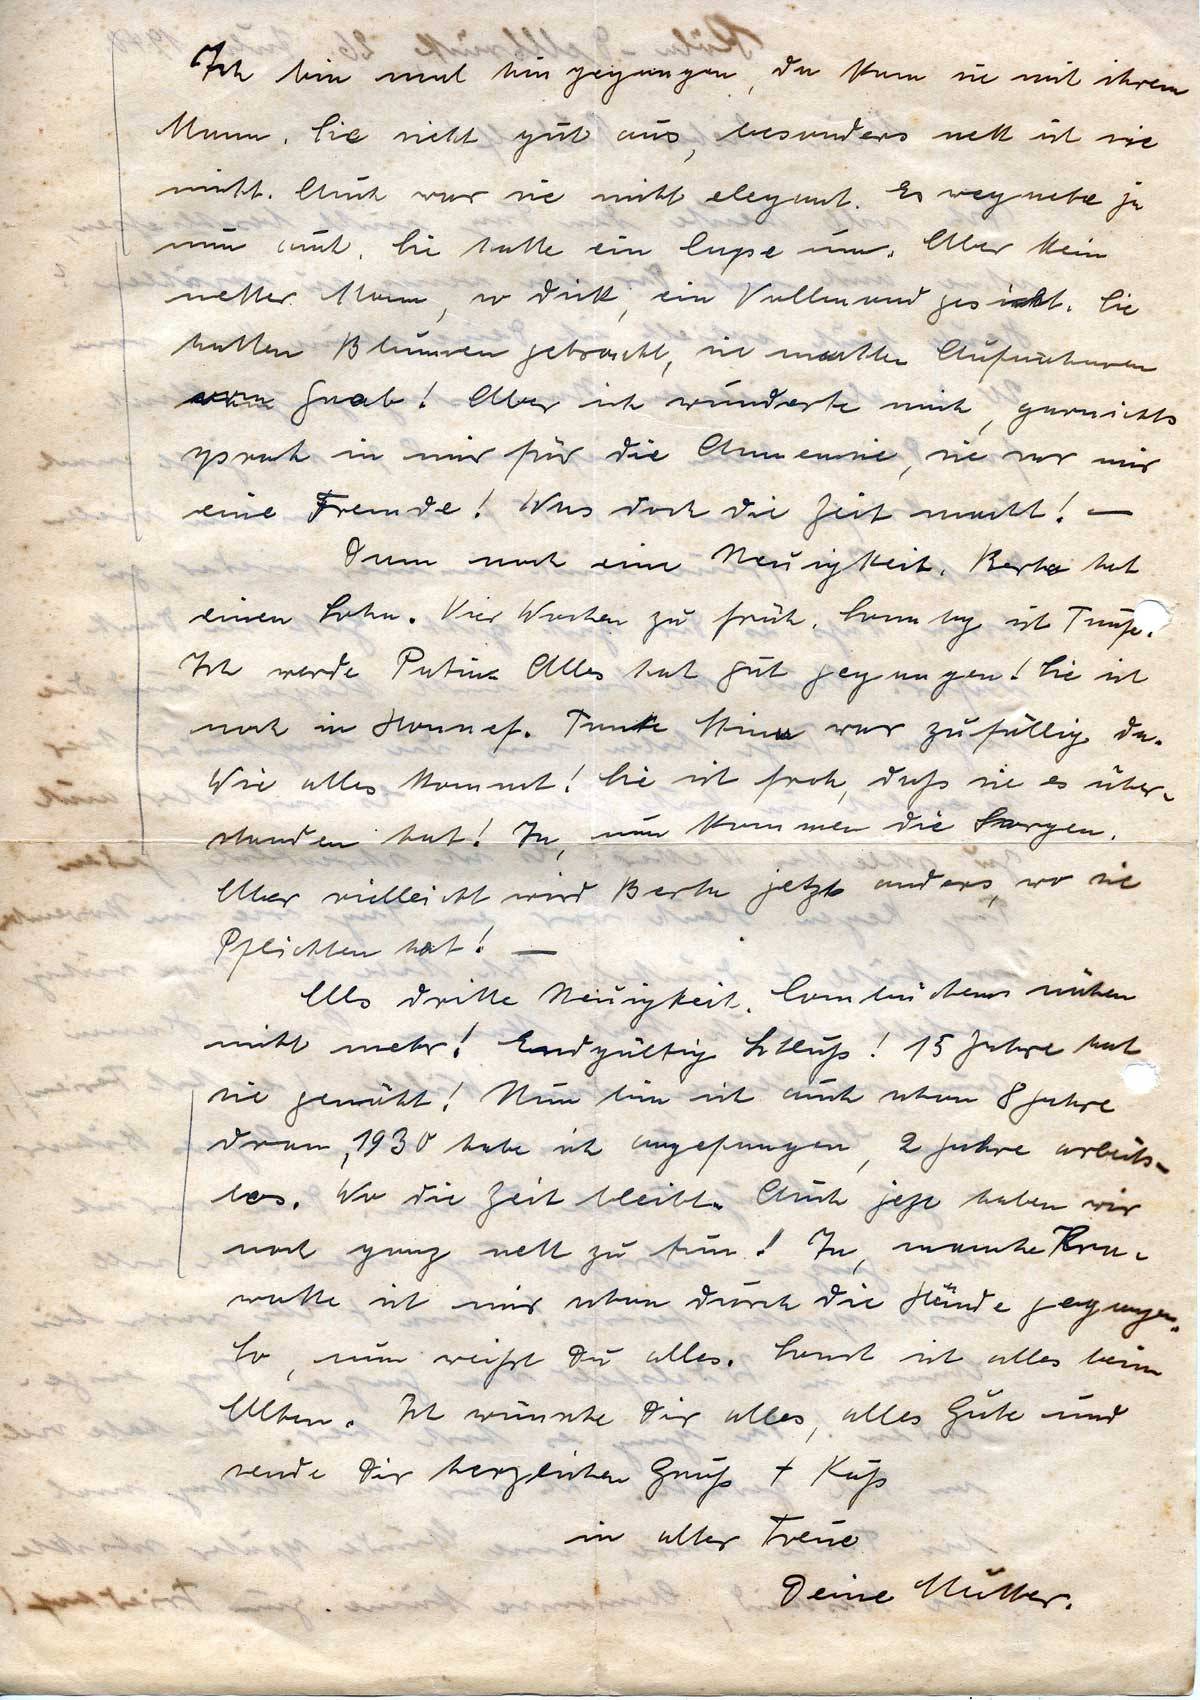 Ich bin mal hingegangen, da kam sie mit ihrem
Mann. Sie sieht gut aus, besonders nett ist sie
nicht. Auch war sie nicht elegant. Es regnete ja
nun auch. Sie hatte ein Cape um. Aber kein
netter Mann, so dick, ein Vollmondgesicht. Sie
hatten Blumen gebracht, sie machten Aufnahmen
Grab! Aber ich wunderte mich, garnichts
sprach in mir für die Annemie, sie war mir
eine Fremde! Was doch die Zeit macht! —
Dann noch eine Neuigkeit. Berta hat
einen Sohn. Vier Wochen zu früh. Sonntag ist Taufe.
Ich werde Patin. Alles hat gut gegangen! Sie ist
noch in Honnef. Tante Mina war zufällig da.
Wie alles kommt! Sie ist froh, daß sie es über-
standen hat! Ja, nun kommen die Sorgen.
Aber vielleicht wird Berta jetzt anders, wo sie
Pflichten hat! —
Als dritte Neuigkeit. nähen
nicht mehr! Endgültig Schluß! 15 Jahre hat
sie genäht! Nun bin ich auch schon 8 Jahre
dran, 1930 habe ich angefangen, 2 Jahre arbeits-
los. Wo die Zeit bleibt. Auch jetzt haben wir
noch ganz nett zu tun! Ja, manche Kra-
watte ist mir schon durch die Hände gegangen.
So, nun weißt Du alles. Sonst ist alles beim
Alten. Ich wünsche Dir alles, alles Gute und
sende Dir herzlichen Gruß + Kuß
in alter Treue
Deine Mutter.